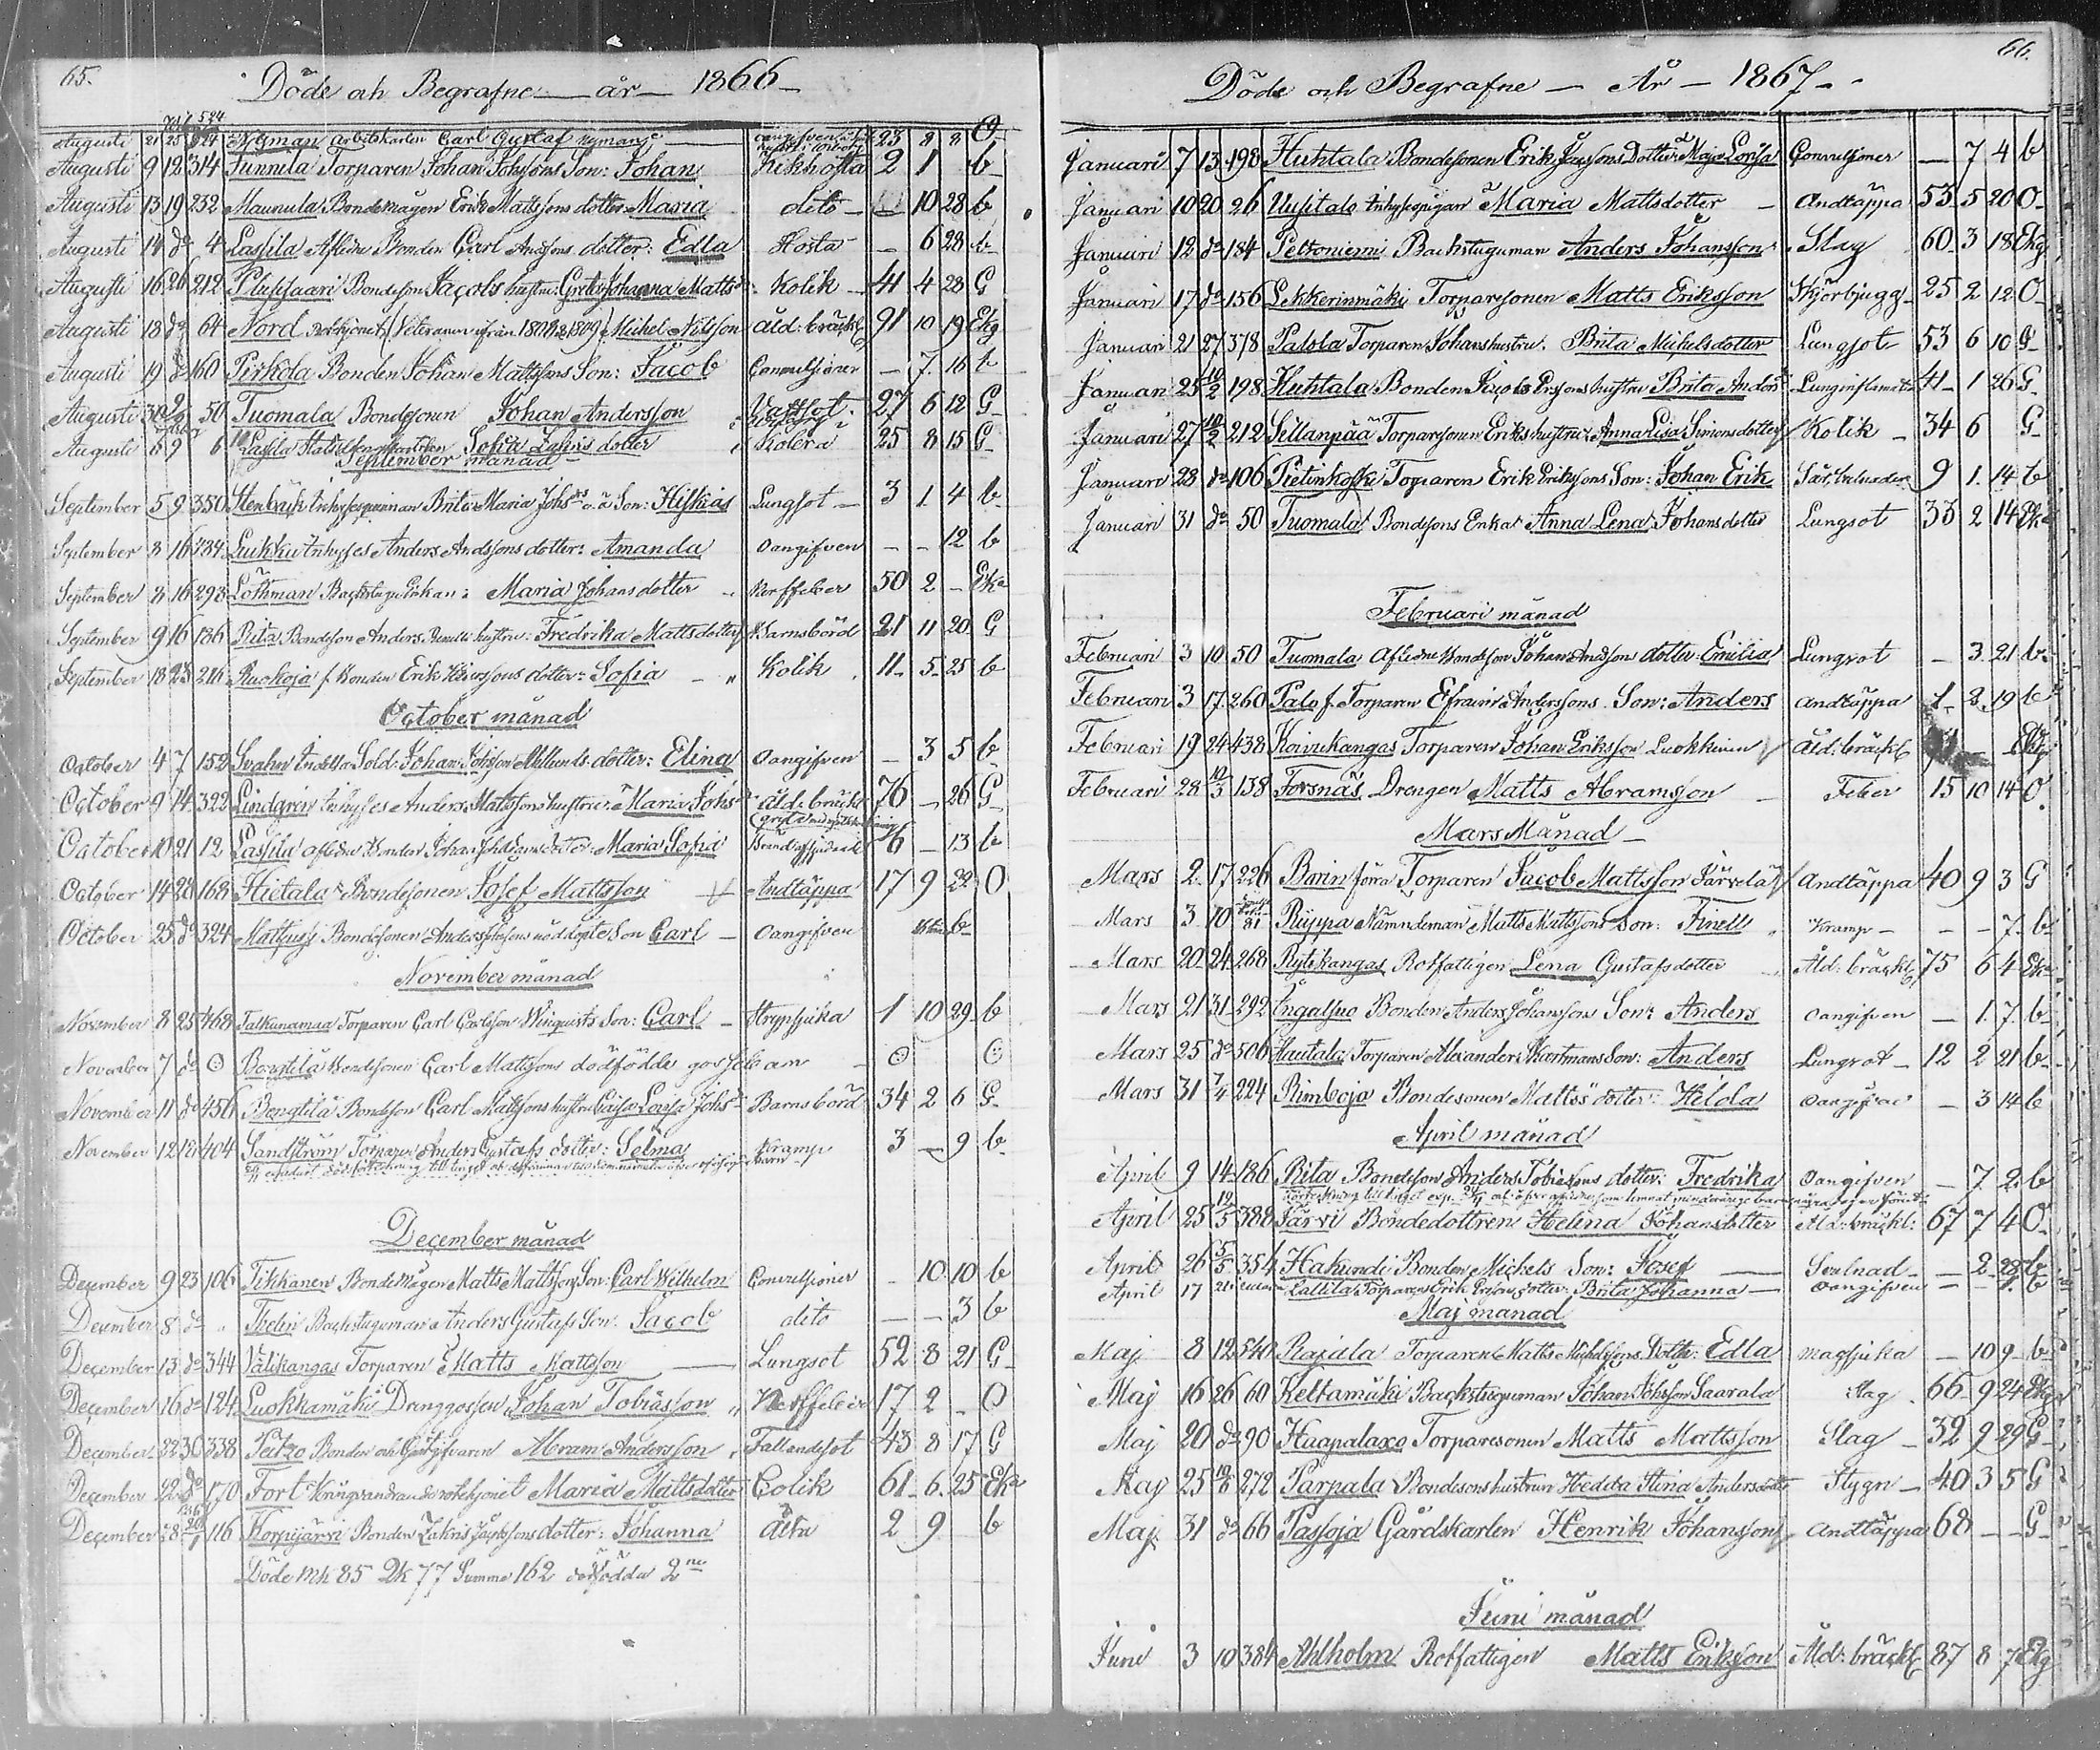 65.
Döde och Begrafne — år — 1866 —
Augusti 21 25 624 Nyman arbetskarlen Carl Gustaf Nyman 23 8 8 O
Augusti 9 12 314 Junnila Torparen Johan Johssons Son: Johan Kikhosta 2 1 b
Augusti 13 19 232 Maunula Bondemågen Erik Mattssons dotter: Maria dito 10 28 b
Augusti 14 do 4 Lassila Aflidne Bonden Carl Andssons dotter: Edla Hosta — 6 28 b
Augusti 16 26 212 Bondeson Jacobs hustru: Greta Johanna Mattsdr Kolik 41 4 28 G
Augusti 18 do 64 Nord Rotehjonet (Veteranen ifrån 1808 & 1809) Michel Nilsson Åld: bräckl 91 10 19 Ekg
Augusti 19 do 160 Pirkola Bonden Johan Mattssons Son: Jacob Convulsioner — 7 16 b
Augusti 30 2/9 50 Tuomala Bondesonen Johan Andersson Vattsot 27 6 12 G
Augusti 6 9 6 Lassila Sofia Zakris dotter Kolera 25 8 15 G
September månad
September 5 9 350 Stenback Inhysespigan Brita Maria Johsdrs o. ä Son: Hiskias Lungsot 3 1 4 b
September 8 16 484 Luikku Inhyses Anders Andssons dotter: Amanda Oangifven — — 12 b
September 8 16 298 Lothman Backstugu Enkan: Maria Johansdotter Nerffeber 50 2 — Eka
September 9 16 186 Rita Bondeson Anders hustru: Fredrika Mattsdotter Barnsbörd 21 11 20 G
September 18 23 216 Ruokoja f. Bonden Erik dotter: Sofia Kolik 11 5 25 b
October månad
October 4 7 152 Svahn Indelta Sold: Johan Johsson dotter: Elina Oangifven — 3 5 b
October 9 14 322 Lindgren Inhyses Anders Mattssons hustru: Maria Johsdr Åld: bräckl 76 — 26 G
October 10 21 12 Lassila aflidne Bonden Johan dotter: Maria Sofia 6 — 13 b
October 14 28 168 Hietala Bondesonen Josef Mattsson Andtäppa 17 9 22 O
October 25 do 324 Mattussi Bondesonen Anders nöddöpte Son Carl — Oangifven b
November månad
November 8 25 468 Talkunamaa Torparen Carl Carlsson Winquists Son: Carl — Strypsjuka 1 10 29 b
November 7 do Bengtilä Bondesonen Carl Mattsons dödfödde gossebarn
November 11 do 456 Bengtilä Bondeson Carl Mattssons hustru Caisa Lovisa Johsdr Barnsbörd 34 2 6 G
November 12 18 404 Sandström Torparen Anders Gustafs dotter: Selma Kramp 3 — 9 b
December månad
December 9 23 106 Tikkanen Bondemågen Matts Mattssons Son: Carl Wilhelm Convulsioner — 10 10 b
December 8 do Thelin Backstuguman Anders Gustafs Son: Jacob dito — — 3 b
December 13 do 344 Välikangas Torparen Matts Mattsson Lungsot 52 8 21 G
December 16 do 124 Luokkamäki Drenggossen Johan Tobiasson Nerffeber 17 2 — O
December 22 30 338 Peitzo Bonden och Gästgifvaren Abram Andersson Fallandesot 43 8 17 G
December 22 do 170 Fort Kringvandrande rotehjonet Maria Mattsdotter Colik 61 6 25 Eka
December 28 116 Korpijärvi Bonden Zakris dotter: Johanna dito 2 9 b
Döde Mk 85 Qk 77 Summa 162 dödfödda 2ne
66.
Döde och Begrafne — År — 1867 —
Januari 7 13 198 Huhtala Bondesonen Erik Jacssons Dotter: Maja Lovisa Convulsioner — 7 4 b
Januari 10 20 26 Uusitalo Inhysespigan Maria Mattsdotter Andtäppa 53 5 20 O
Januari 12 do 184 Petroniemi Backstuguman Anders Johansson Slag 60 3 18 Ekg
Januari 17 do 156 Lekkerinmäki Torparesonen Matts Eriksson Skjörbjugg 25 2 12 O
Januari 21 27 378 Palola Torparen Johans hustru: Brita Michelsdotter Lungsot 53 6 10 G
Januari 25 10/2 198 Huhtala Bonden Jacob Erssons hustru Brita Andersdr Lunginflamation 41 1 26 G
Januari 27 10/2 212 Sillanpää Torparesonen Eriks hustru: Anna Lisa Simonsdotter Kolik 34 6 G
Januari 28 do 106 Pietinkoski Torparen Erik Erikssons Son: Johan Erik 9 1 14 b
Januari 31 do 50 Tuomala Bondesons Enka Anna Lena Johansdotter Lungsot 33 2 14 Eka
Februari månad
Februari 3 10 50 Tuomala Aflidne Bondeson Johan Andsson dotter: Emilia Lungsot — 3 21 b
Februari 3 17 260 Palo f. Torparen Efraim Anderssons Son: Anders Andtäppa 1 8 19 b
Februari 19 24 438 Koivukangas Torparen Johan Eriksson Luokkinen Åld: bräckl Ekg
Februari 28 10/3 138 Forsnäs Drengen Matts Abramsson Feber 15 10 14 O
Mars Månad
Mars 2 17 226 Borin förra Torparen Jacob Mattsson Järvelä Andtäppa 40 9 3 G
Mars 3 10 81 Ruppa Nämndeman Matts Mattssons Son: Finell Kramp — — 7 b
Mars 20 24 268 Rytikangas Rotfattigen Lena Gustafsdotter Åld: bräckl 75 6 4 Eka
Mars 21 31 292 Ingalsuo Bonden Anders Johanssons Son: Anders Oangifven — 1 7 b
Mars 25 do 506 Hautala Torparen Alexander Hartmans Son: Anders Lungsot 12 2 21 b
Mars 31 7/4 224 Rimboja Bondesonen Matts's dotter: Hilda Oangifven — 3 14 b
April månad
April 9 14 186 Rita Bondeson Anders Tobiassons dotter: Fredrika Oangifven — 7 2 b
April 25 12/5 388 Järvi Bondedottren Helena Johansdotter Åld: bräckl: 67 7 4 O
April 26 5/5 354 Hakundi Bonden Michels Son: Josef — 2 28 b
April 17 21 Lassila Torparen Erik Erssons dotter: Brita Johanna — Oangifven — — 1 b
Maj månad
Maj 8 12 540 Rajala Torparen Matts Michelssons Dotter: Edla magsjuka — 10 9 b
Maj 16 26 60 Keltamäki Backstuguman Johan Johsson Saarala Slag 66 9 24 Ekg
Maj 20 do 90 Haapalaxo Torparesonen Matts Mattsson Slag 32 9 29 G
Maj 25 272 Parpala Bondesonshustrun Hedda Stina Andersdotter Stygn 40 3 5 G
Maj 31 do 66 Passoja Gårdskarlen Henrik Johansson Andtäppa 68 — — G
Juni månad
Juni 3 10 384 Ahlholm Rotfattigen Matts Eriksson Åld: bräckl 87 8 7 Ekg